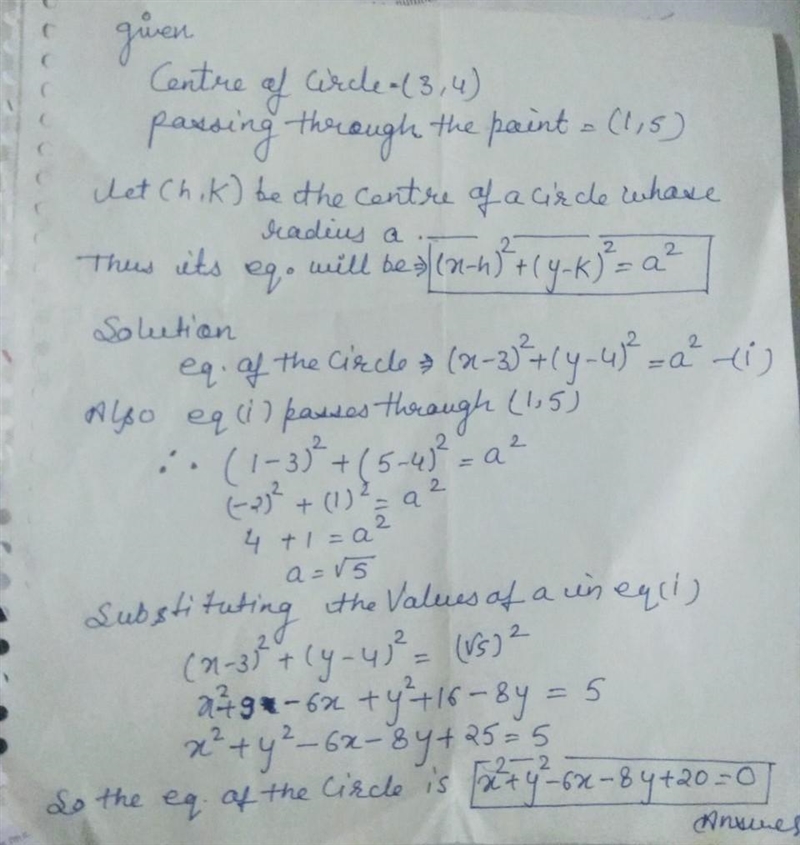 given
Centre of Circle = (3,4)
passing through the point = (1,5)
Let (h,k) be the centre of a circle whose
radius a.
Thus its eq. will be ⇒ (x-h)² + (y-k)² = a²
Solution
eq. of the Circle ⇒ (x-3)² + (y-4)² = a² -(i)
Also eq (i) passes through (1,5)
∴ (1-3)² + (5-4)² = a²
(-2)² + (1)² = a²
4 + 1 = a²
a = √5
Substituting the Values of a in eq (i)
(x-3)² + (y-4)² = (√5)²
x² + 9 - 6x + y² + 16 - 8y = 5
x² + y² - 6x - 8y + 25 = 5
So the eq. of the Circle is x² + y² - 6x - 8y + 20 = 0
Answer